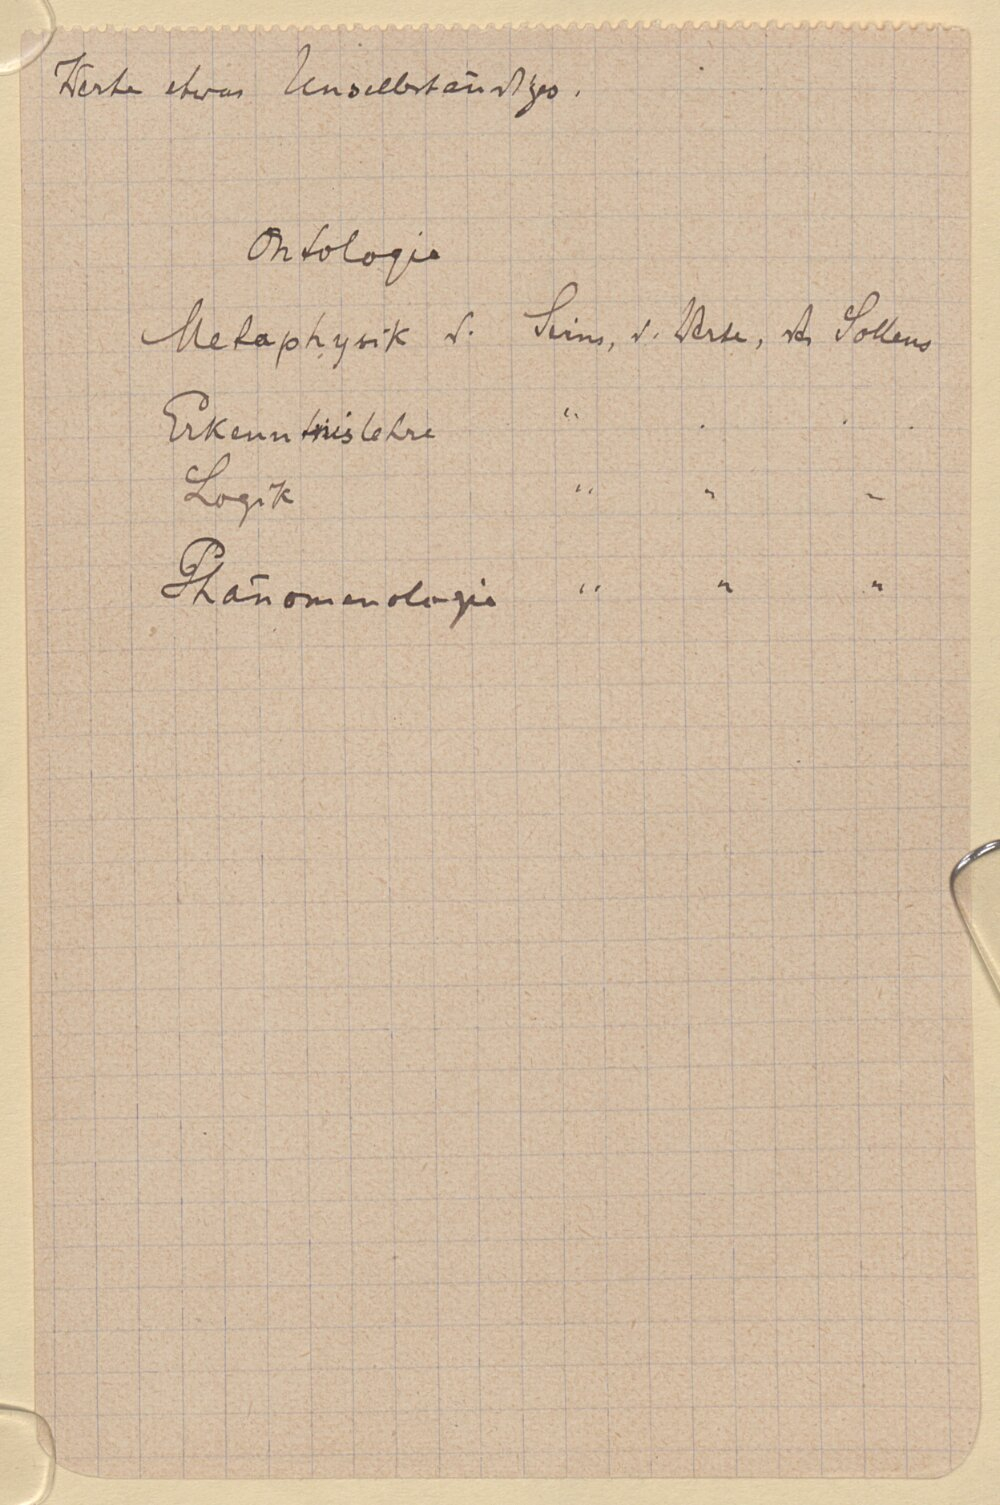 Werte etwas Unselbständiges.
Ontologie
Metaphysik d. Seins, d. Werte, des Sollens
Erkenntnislehre " . . .
Logik " " "
Phänomenologie " " "